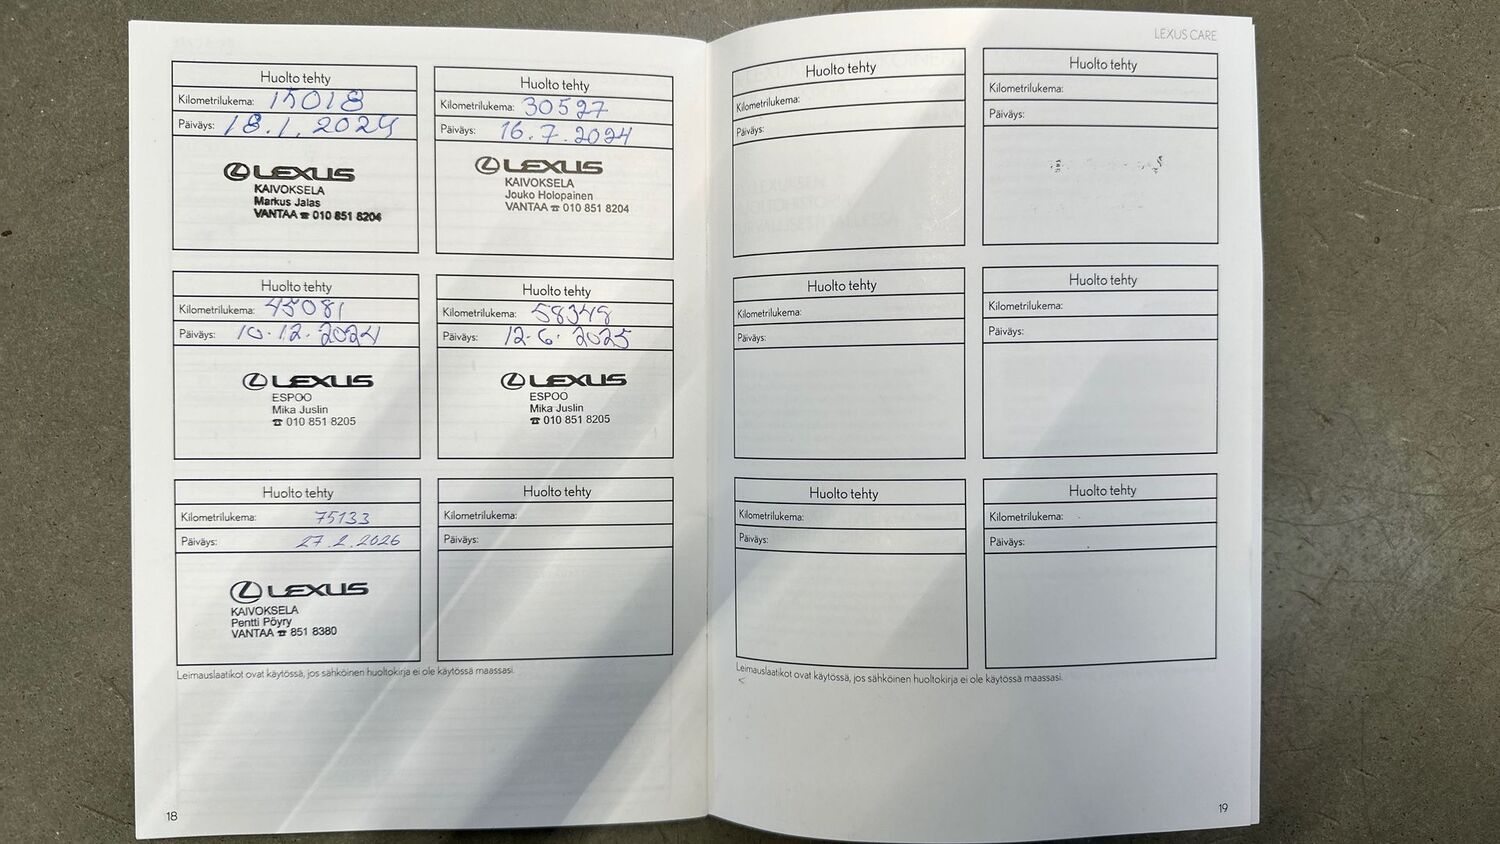 LEXUS CARE
Huolto tehty
Kilometrilukema: 15018
Päiväys: 18.1.2024
LEXUS
KAIVOKSELA
Markus Jalas
VANTAA ☎ 010 851 8204
Huolto tehty
Kilometrilukema: 30527
Päiväys: 16.7.2024
LEXUS
KAIVOKSELA
Jouko Holopainen
VANTAA ☎ 010 851 8204
Huolto tehty
Kilometrilukema: 45081
Päiväys: 10.12.2024
LEXUS
ESPOO
Mika Juslin
☎ 010 851 8205
Huolto tehty
Kilometrilukema: 58348
Päiväys: 12.6.2025
LEXUS
ESPOO
Mika Juslin
☎ 010 851 8205
Huolto tehty
Kilometrilukema: 75133
Päiväys: 27.2.2026
LEXUS
KAIVOKSELA
Pentti Pöyry
VANTAA ☎ 851 8380
Huolto tehty
Kilometrilukema:
Päiväys:
Leimauslaatikot ovat käytössä, jos sähköinen huoltokirja ei ole käytössä maassasi.
18
Huolto tehty
Kilometrilukema:
Päiväys:
Huolto tehty
Kilometrilukema:
Päiväys:
Huolto tehty
Kilometrilukema:
Päiväys:
Huolto tehty
Kilometrilukema:
Päiväys:
Huolto tehty
Kilometrilukema:
Päiväys:
Huolto tehty
Kilometrilukema:
Päiväys:
Leimauslaatikot ovat käytössä, jos sähköinen huoltokirja ei ole käytössä maassasi.
19